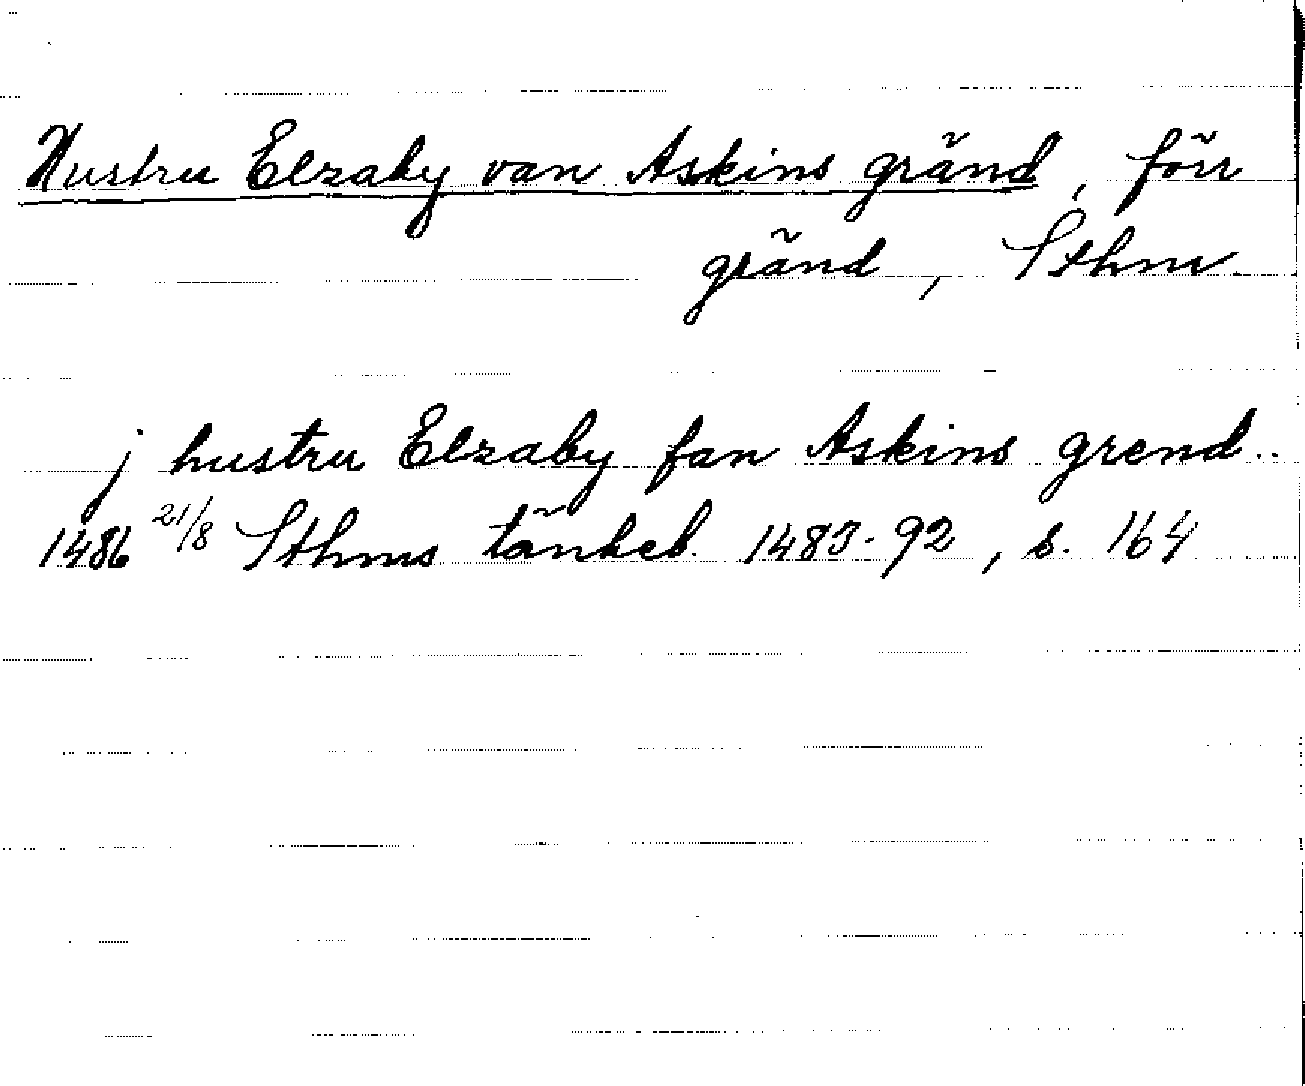 Hustru Elzaby van Askins gränd, förr
gränd, Sthm
j hustru Elzaby fan Askins grend..
1486 21/8 Sthms tänkeb. 1483-92, s. 164